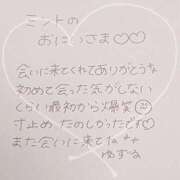 ミントの
おにいさま♡♡
会いに来てくれてありがとうな
初めて会った気がしない
くらい最初から爆笑
寸止め たのしかったでれ♡
また会いに来てな
ゆずな